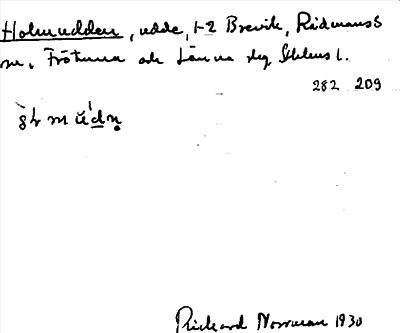 Holmudden, udde, 1-2 Brevik, Rådmansö
sn. Frötuna och Länna slg Sthlms l.
282 209
Rickard Norrman 1930